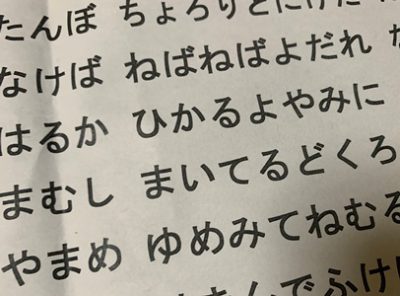 たんぼ ちょろりとにげた
なけば ねばねばよだれ
はるか ひかるよやみに
まむし まいてるどくろ
やまめ ゆめみてねむる
んでふけ